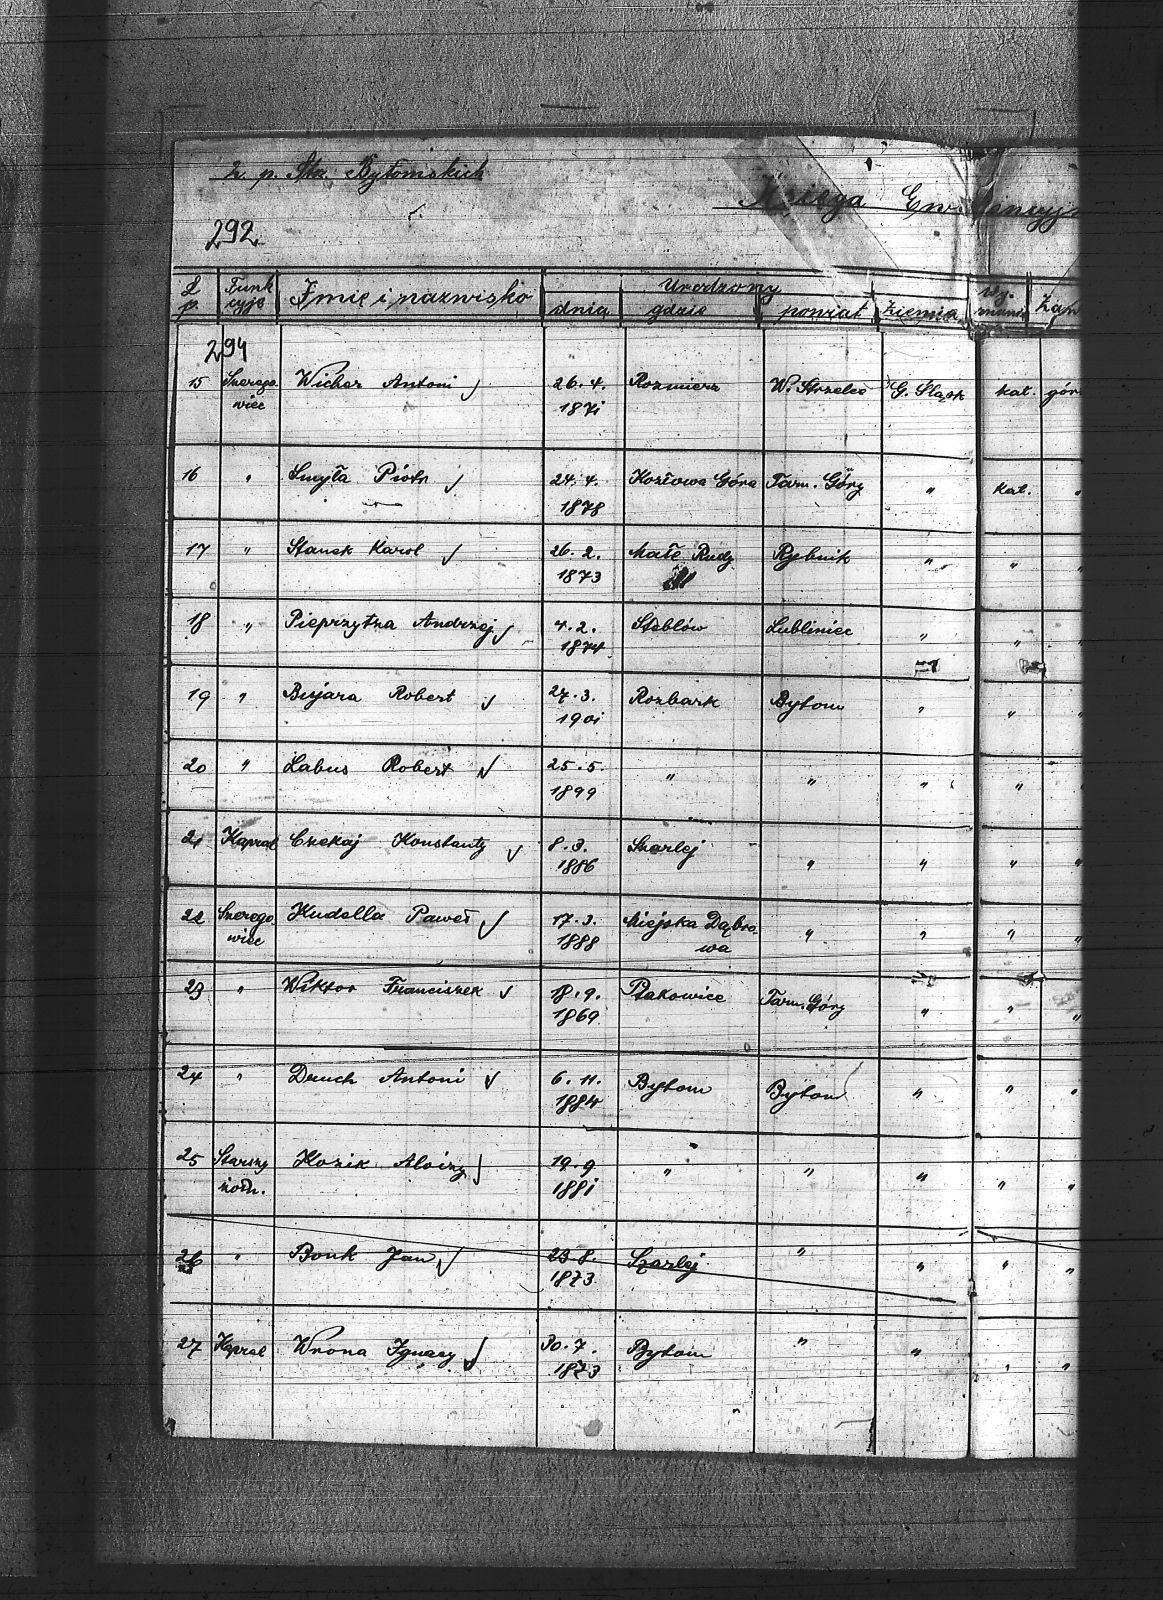 2 p. Strz. Bytomskich
Księga Ew
292
L. p. Funkcyje Imię i nazwisko Urodzony Wyznanie
dnia gdzie powiat Ziemia
294
15 Szeregowiec Wicher Antoni 26.4. 1871 Rozmierz W. Strzelce G. Śląsk kat. gór
16 " Smyła Piotr 24.4. 1878 Kozłowa Góra Tarn. Góry " kat. "
17 " Stanek Karol 26.2. 1873 Małe Rudy Rybnik " " "
18 " Pieprzytza Andrzej 4.2. 1874 Steblów Lubliniec " " "
19 " Bujara Robert 27.3. 1901 Rozbark Bytom " " "
20 " Labus Robert 25.5. 1899 " " " " "
21 Kapral Czekaj Konstanty 8.3. 1886 Szarlej " " " "
22 Szeregowiec Kudella Paweł 17.3. 1888 Miejska Dąbrowa " " " "
23 " Wiktor Franciszek 18.9. 1869 Ptakowice Tarn. Góry " " "
24 " Druch Antoni 6.11. 1884 Bytom Bytom " " "
25 Starszy żołn. Kozik Alojzy 19.9 1881 " " " " "
26 " Bonk Jan 23.8. 1873 Szarlej " " " "
27 Kapral Wrona Ignacy 30.7. 1873 Bytom " " " "